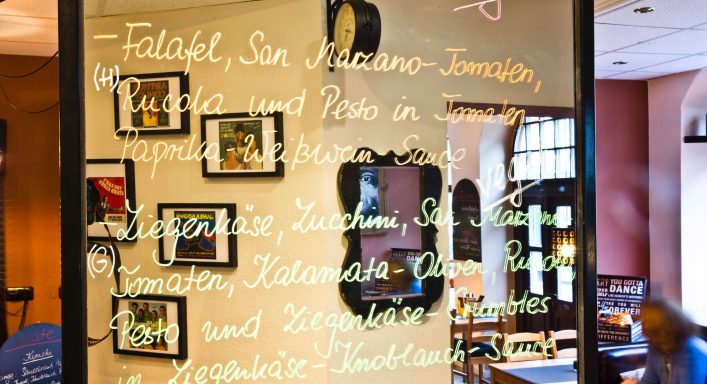 - Falafel, San Marzano-Tomaten,
(H) Rucola und Pesto in Tomaten
Paprika-Weißwein-Sauce
vegan
- Ziegenkäse, Zucchini, San Marzano-
(G) Tomaten, Kalamata-Oliven, Rucola,
Pesto und Ziegenkäse-Crumbles
in Ziegenkäse-Knoblauch-Sauce
Kimchi
YOU GOTTA
DANCE